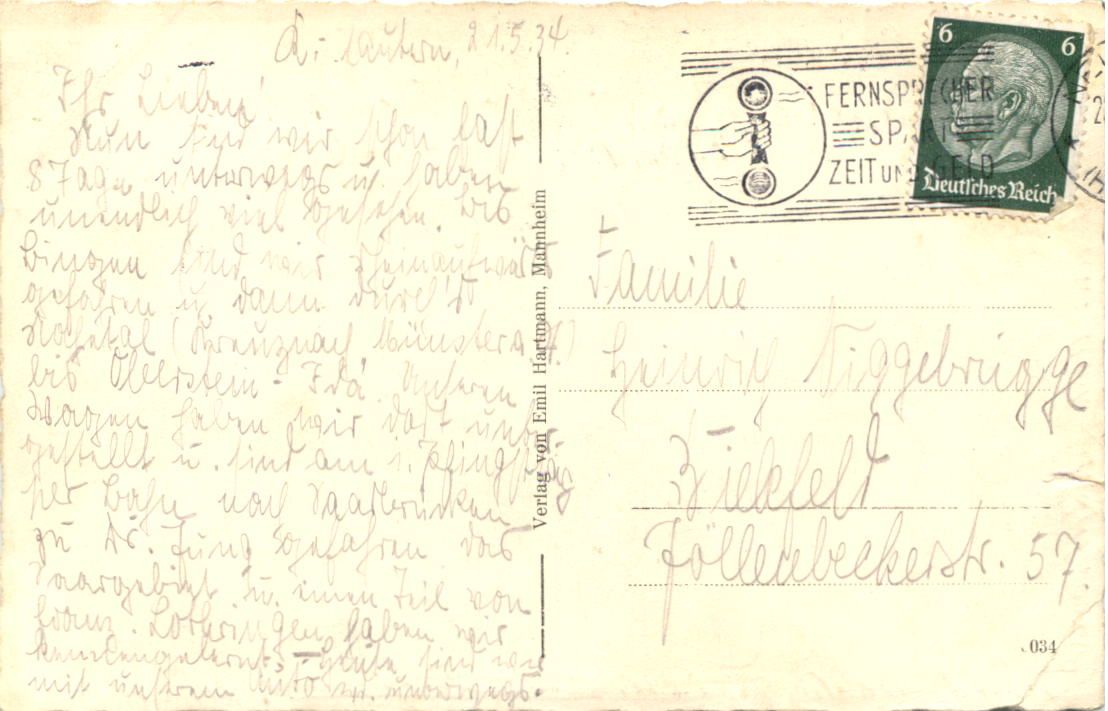 K.-lautern, 21.5.34.
Ihr Lieben!
Nun sind wir schon fast
8 Tage unterwegs u. haben
unendlich viel gesehen. Bis
Bingen sind wir rheinaufwärts
gefahren u. dann durch's
Nahetal (Kreuznach Münster a. St.)
bis Oberstein-Idar. Unseren
Wagen haben wir dort unter-
gestellt u. sind am 1. Pfingsttag
per Bahn nach Saarbrücken
zu Dr. Jung gefahren das
Saargebiet u. einen Teil von
franz. Lothringen haben wir
kennengelernt. Heute sind wir
mit unserem Auto unterwegs.
Verlag von Emil Hartmann, Mannheim
FERNSPRECHER
SPART
ZEIT UND GELD
6 6
Deutsches Reich
Familie
Heinrich Niggebrügge
Bielefeld
Jöllenbeckerstr. 57.
034